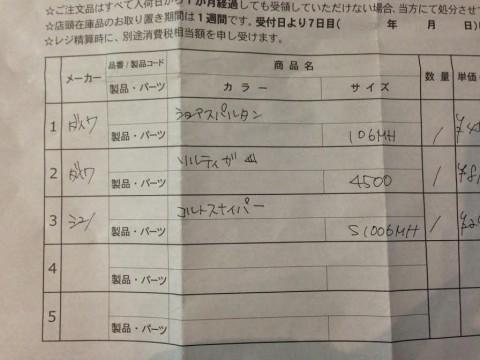 ☆ご注文品はすべて入荷日から1か月経過しても受領していただけない場合、当方にて処分させて
☆店頭在庫品のお取り置き期間は1週間です。受付日より7日目( 年 月 日)
☆レジ精算時に、別途消費税相当額を申し受けます。
メーカー 品番/製品コード 商品名 数量 単価
製品・パーツ カラー サイズ
1 ダイワ ショアスパルタン
製品・パーツ 106MH 1
2 ダイワ ソルティガ
製品・パーツ 4500 1
3 シマノ コルトスナイパー
製品・パーツ S1006MH 1
4
製品・パーツ
5
製品・パーツ